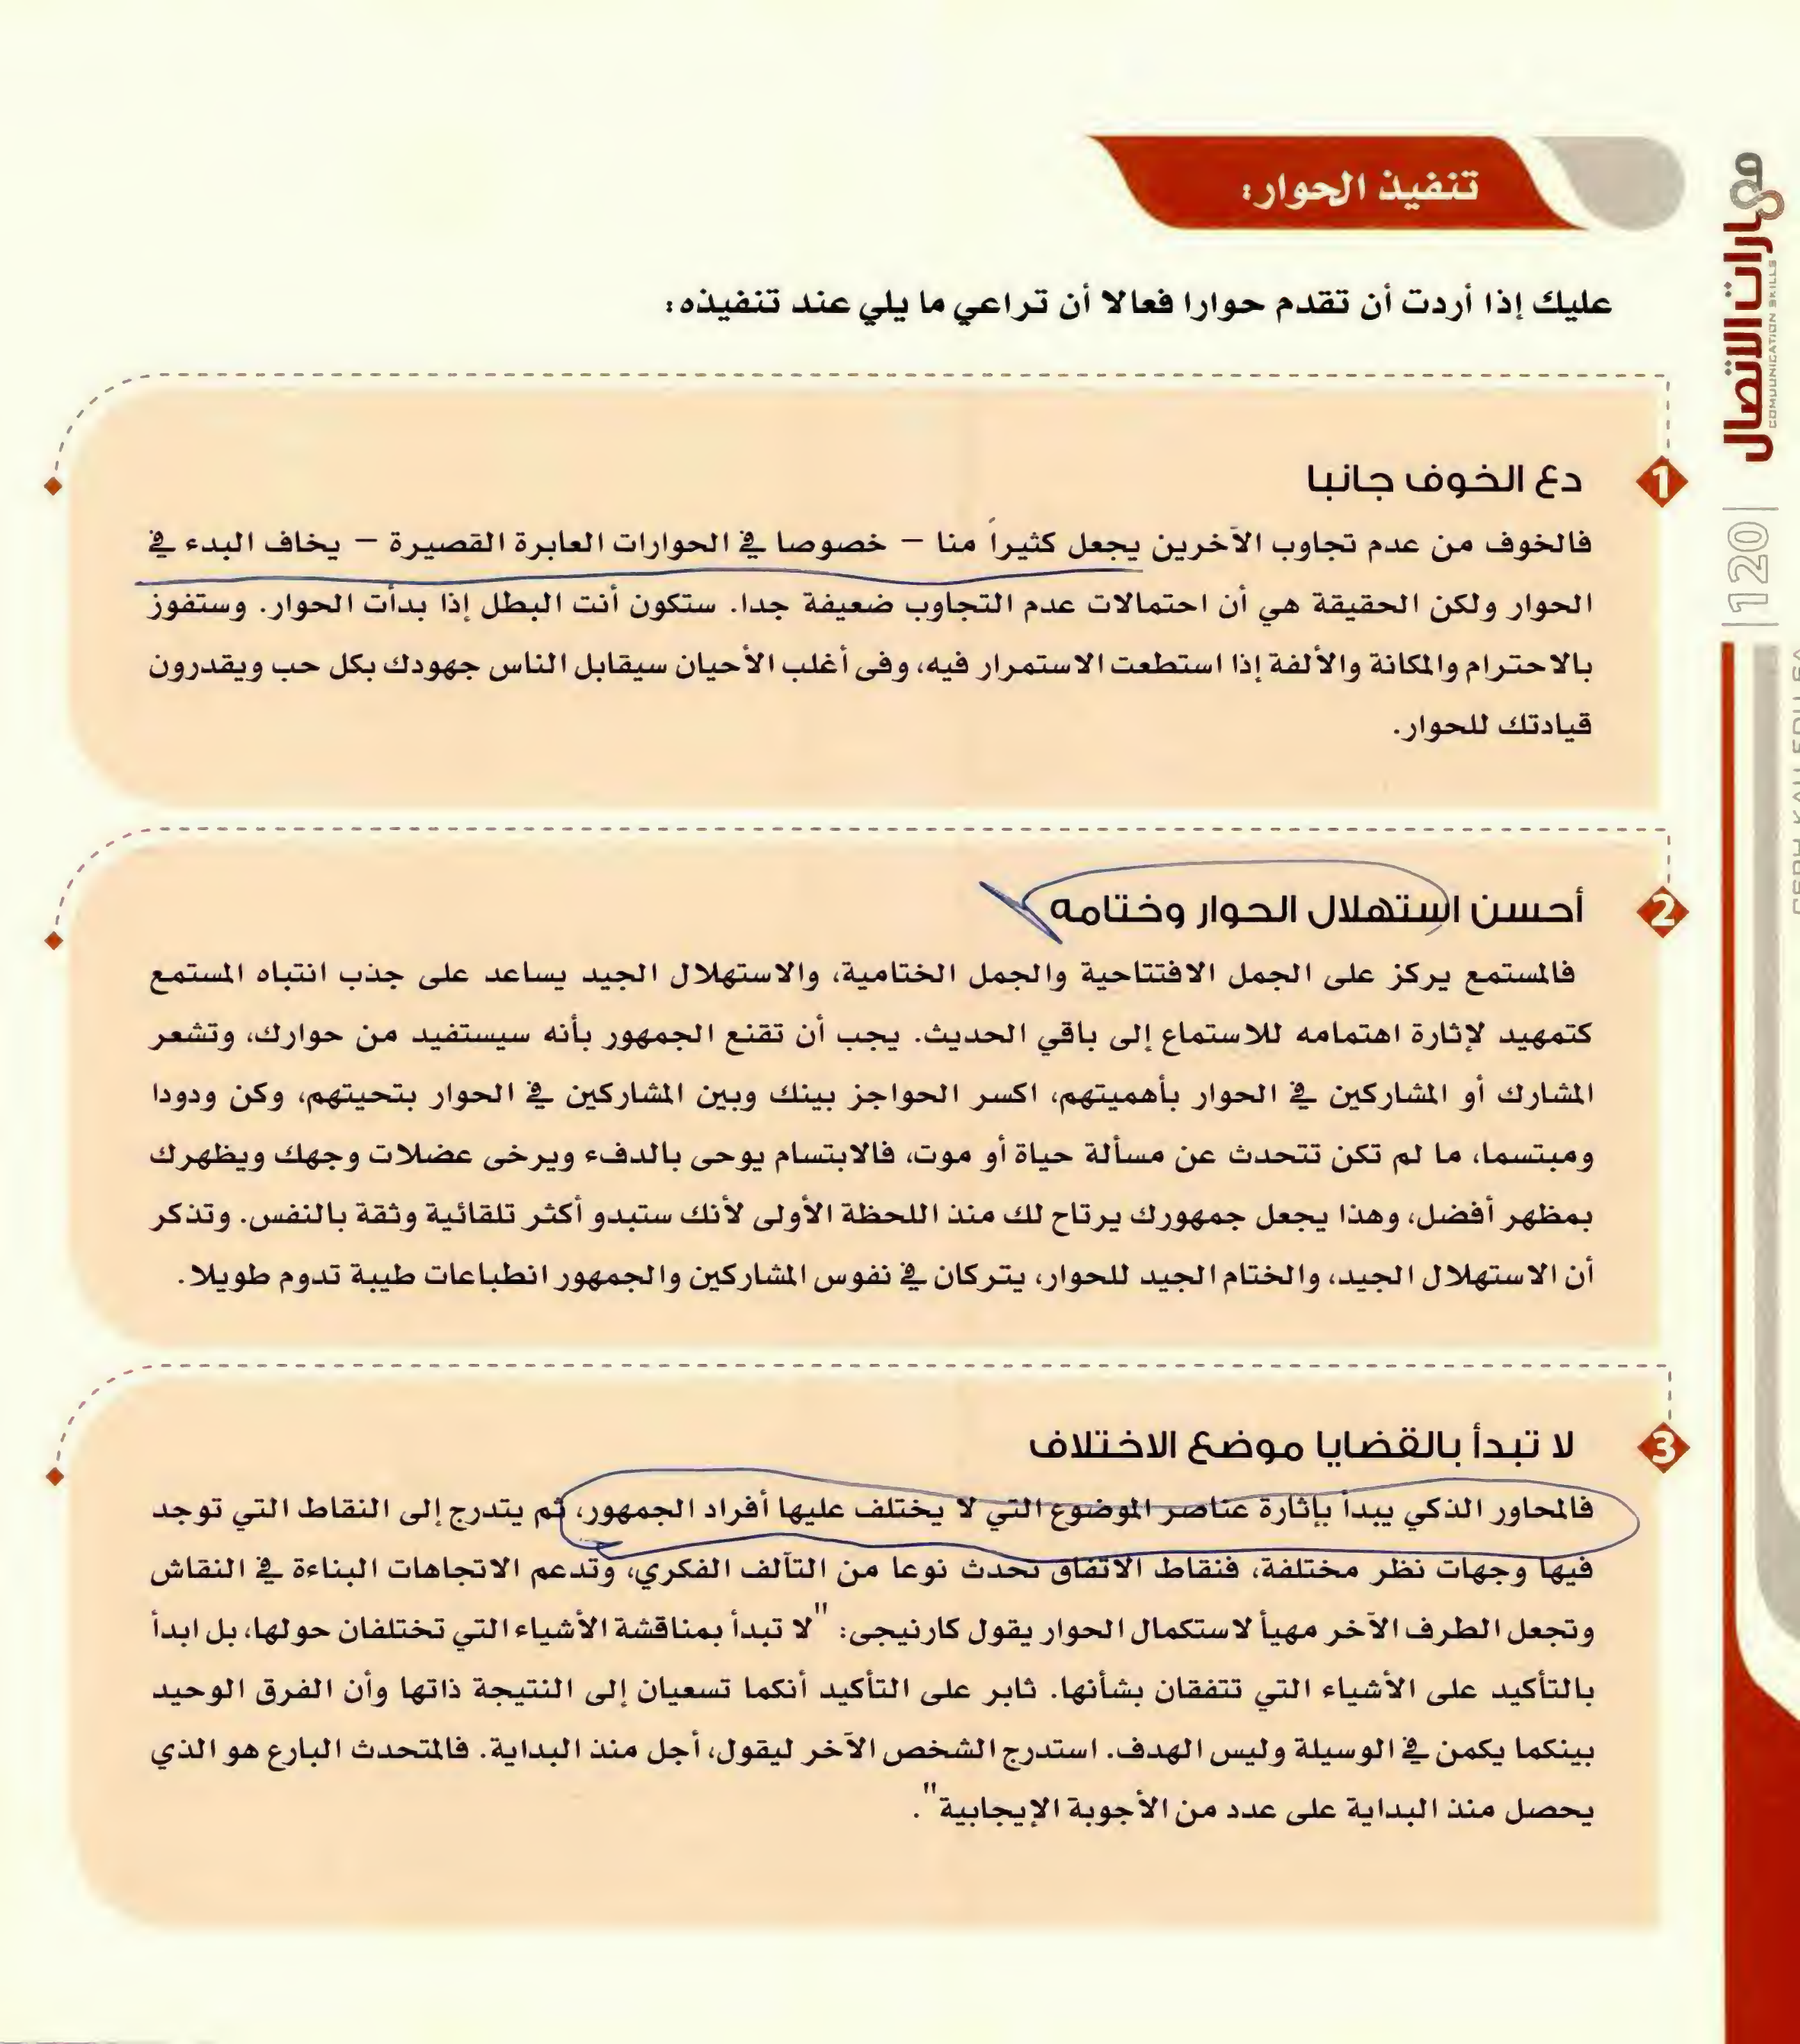 تنفيذ الحوار:
عليك إذا أردت أن تقدم حوارا فعالا أن تراعي ما يلي عند تنفيذه:
1
دع الخوف جانبا
فالخوف من عدم تجاوب الآخرين يجعل كثيراً منا – خصوصا في الحوارات العابرة القصيرة – يخاف البدء في
الحوار ولكن الحقيقة هي أن احتمالات عدم التجاوب ضعيفة جدا. ستكون أنت البطل إذا بدأت الحوار. وستفوز
بالاحترام والمكانة والألفة إذا استطعت الاستمرار فيه، وفى أغلب الأحيان سيقابل الناس جهودك بكل حب ويقدرون
قيادتك للحوار.
2
أحسن استهلال الحوار وختامه
فالمستمع يركز على الجمل الافتتاحية والجمل الختامية، والاستهلال الجيد يساعد على جذب انتباه المستمع
كتمهيد لإثارة اهتمامه للاستماع إلى باقي الحديث. يجب أن تقنع الجمهور بأنه سيستفيد من حوارك، وتشعر
المشارك أو المشاركين في الحوار بأهميتهم، اكسر الحواجز بينك وبين المشاركين في الحوار بتحيتهم، وكن ودودا
ومبتسما، ما لم تكن تتحدث عن مسألة حياة أو موت، فالابتسام يوحى بالدفء ويرخى عضلات وجهك ويظهرك
بمظهر أفضل، وهذا يجعل جمهورك يرتاح لك منذ اللحظة الأولى لأنك ستبدو أكثر تلقائية وثقة بالنفس. وتذكر
أن الاستهلال الجيد، والختام الجيد للحوار، يتركان في نفوس المشاركين والجمهور انطباعات طيبة تدوم طويلا.
3
لا تبدأ بالقضايا موضع الاختلاف
فالمحاور الذكي يبدأ بإثارة عناصر الموضوع التي لا يختلف عليها أفراد الجمهور، ثم يتدرج إلى النقاط التي توجد
فيها وجهات نظر مختلفة، فنقاط الاتفاق تحدث نوعا من التآلف الفكري، وتدعم الاتجاهات البناءة في النقاش
وتجعل الطرف الآخر مهيأ لاستكمال الحوار يقول كارنيجى: "لا تبدأ بمناقشة الأشياء التي تختلفان حولها، بل ابدأ
بالتأكيد على الأشياء التي تتفقان بشأنها. ثابر على التأكيد أنكما تسعيان إلى النتيجة ذاتها وأن الفرق الوحيد
بينكما يكمن في الوسيلة وليس الهدف. استدرج الشخص الآخر ليقول، أجل منذ البداية. فالمتحدث البارع هو الذي
يحصل منذ البداية على عدد من الأجوبة الإيجابية".
مهارات الاتصال
COMMUNICATION SKILLS
|120|